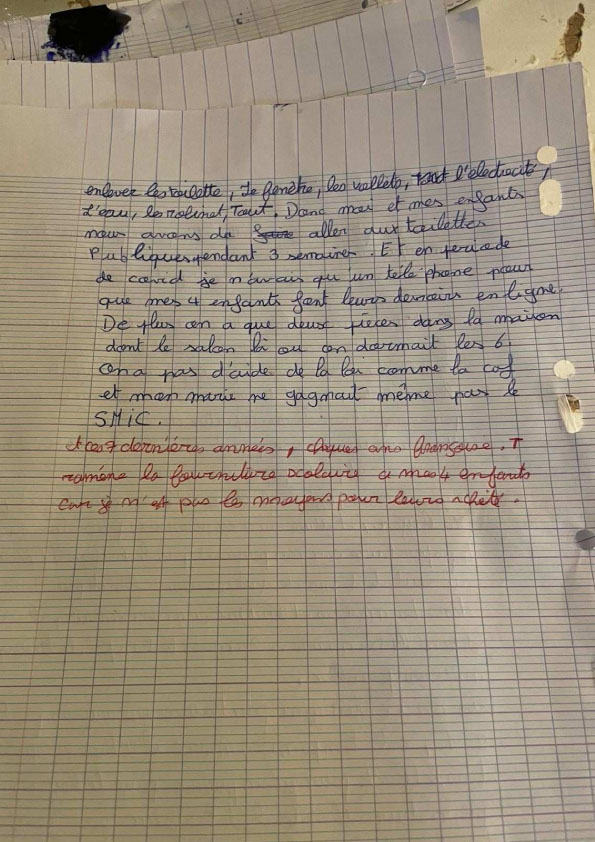 enlever les toilette, Je fenêtre, les vollets, tout l'électricité,
L'eau, les robinet, Tout. Donc moi et mes enfants
nous avons du aller aux toilettes
Publiques pendant 3 semaines. Et en periode
de covid je n'avais qu'un téléphone pour
que mes 4 enfants font leurs devoirs en ligne.
De plus on a que deux pièces dans la maison
dont le salon là ou on dormait les 6.
on a pas d'aide de la comme la caf
et mon marie ne gagnait même pas le
SMiC.
ces 7 dernières années, chaques ans françoise. T
ramène la fourniture scolaire a mes 4 enfants
car je n'est pas les moyens pour leurs achété.